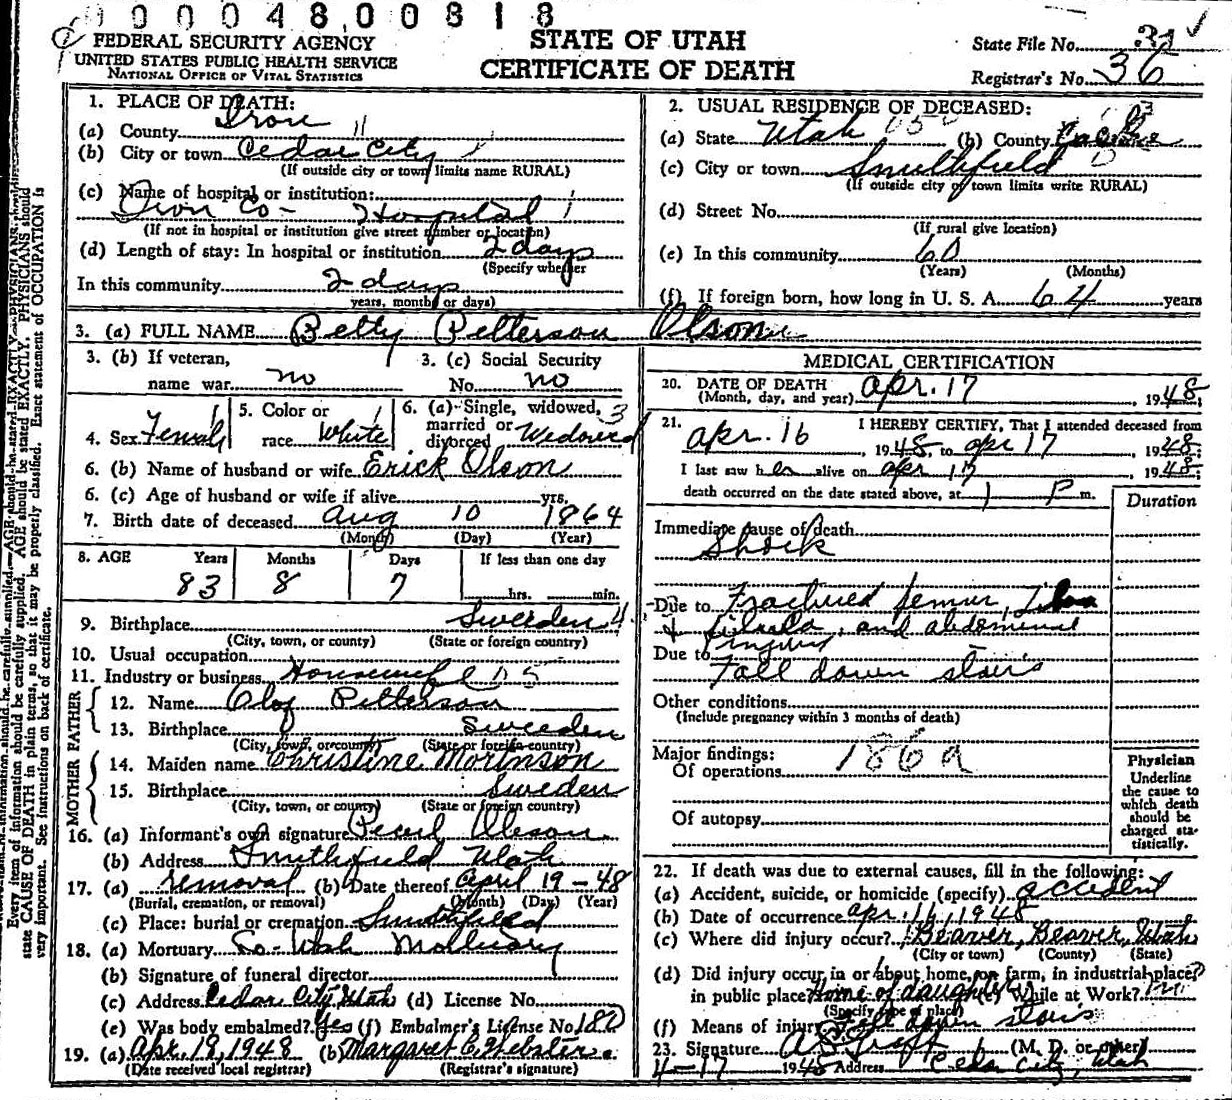 0000 48,00818
FEDERAL SECURITY AGENCY
UNITED STATES PUBLIC HEALTH SERVICE
NATIONAL OFFICE OF VITAL STATISTICS
STATE OF UTAH
CERTIFICATE OF DEATH
State File No.
Registrar's No. 36
1. PLACE OF DEATH:
(a) County Iron 11
(b) City or town Cedar City
(If outside city or town limits name RURAL)
(c) Name of hospital or institution:
Iron Co- Hospital 1
(If not in hospital or institution give street number or location)
(d) Length of stay: In hospital or institution 2 days
(Specify whether
In this community 2 days
years, months or days)
2. USUAL RESIDENCE OF DECEASED:
(a) State Utah (b) County Cache
(c) City or town Smithfield
(If outside city of town limits write RURAL)
(d) Street No.
(If rural give location)
(e) In this community 60
(Years) (Months)
(f) If foreign born, how long in U. S. A. 64 years
3. (a) FULL NAME Betty Petterson Olson
3. (b) If veteran,
name war no
3. (c) Social Security
No. no
4. Sex Female
5. Color or
race White
6. (a) Single, widowed, 3
married or
divorced Widowed
6. (b) Name of husband or wife Erick Olson
6. (c) Age of husband or wife if alive yrs.
7. Birth date of deceased Aug 10 1864
(Month) (Day) (Year)
8. AGE Years Months Days If less than one day
83 8 7 hrs. min.
9. Birthplace Sweeden 4
(City, town, or county) (State or foreign country)
10. Usual occupation
11. Industry or business Housewife
FATHER
12. Name Olof Petterson
13. Birthplace Sweeden
(City, town, or county) (State or foreign country)
MOTHER
14. Maiden name Christine Mortnson
15. Birthplace Sweden
(City, town, or county) (State or foreign country)
16. (a) Informant's own signature Pearl Oleson
(b) Address Smithfield Utah
17. (a) removal (b) Date thereof April 19 - 48
(Burial, cremation, or removal) (Month) (Day) (Year)
(c) Place: burial or cremation Smithfield
18. (a) Mortuary So- Utah Mortuary
(b) Signature of funeral director
(c) Address Cedar City, Utah (d) License No.
(e) Was body embalmed? Yes (f) Embalmer's License No. 180
19. (a) Apr. 19, 1948 (b) Margaret C. Webster
(Date received local registrar) (Registrar's signature)
MEDICAL CERTIFICATION
20. DATE OF DEATH
(Month, day, and year) Apr. 17, 1948;
21. I HEREBY CERTIFY, That I attended deceased from
Apr. 16, 1948, to Apr 17, 1948;
I last saw her alive on Apr 17, 1948;
death occurred on the date stated above, at 1 P m.
Duration
Immediate cause of death
Shock
Due to Fractured femur, tibia
& fibula, and abdominal
injuries
Due to
Fall down stairs
Other conditions
(Include pregnancy within 3 months of death)
Major findings: 186a
Of operations
Of autopsy
Physician
Underline
the cause to
which death
should be
charged sta-
tistically.
22. If death was due to external causes, fill in the following:
(a) Accident, suicide, or homicide (specify) accident
(b) Date of occurrence Apr. 16, 1948
(c) Where did injury occur? Beaver, Beaver, Utah
(City or town) (County) (State)
(d) Did injury occur in or about home, on farm, in industrial place,
in public place? Home of daughter (e) While at Work?
(Specify type of place)
(f) Means of injury Fell down stairs
23. Signature (M. D. or other)
4-17 1948 Address Cedar City, Utah
Every item of information should be carefully supplied. AGE should be stated EXACTLY. PHYSICIANS should
state CAUSE OF DEATH in plain terms, so that it may be properly classified. Exact statement of OCCUPATION is
very important. See instructions on back of certificate.